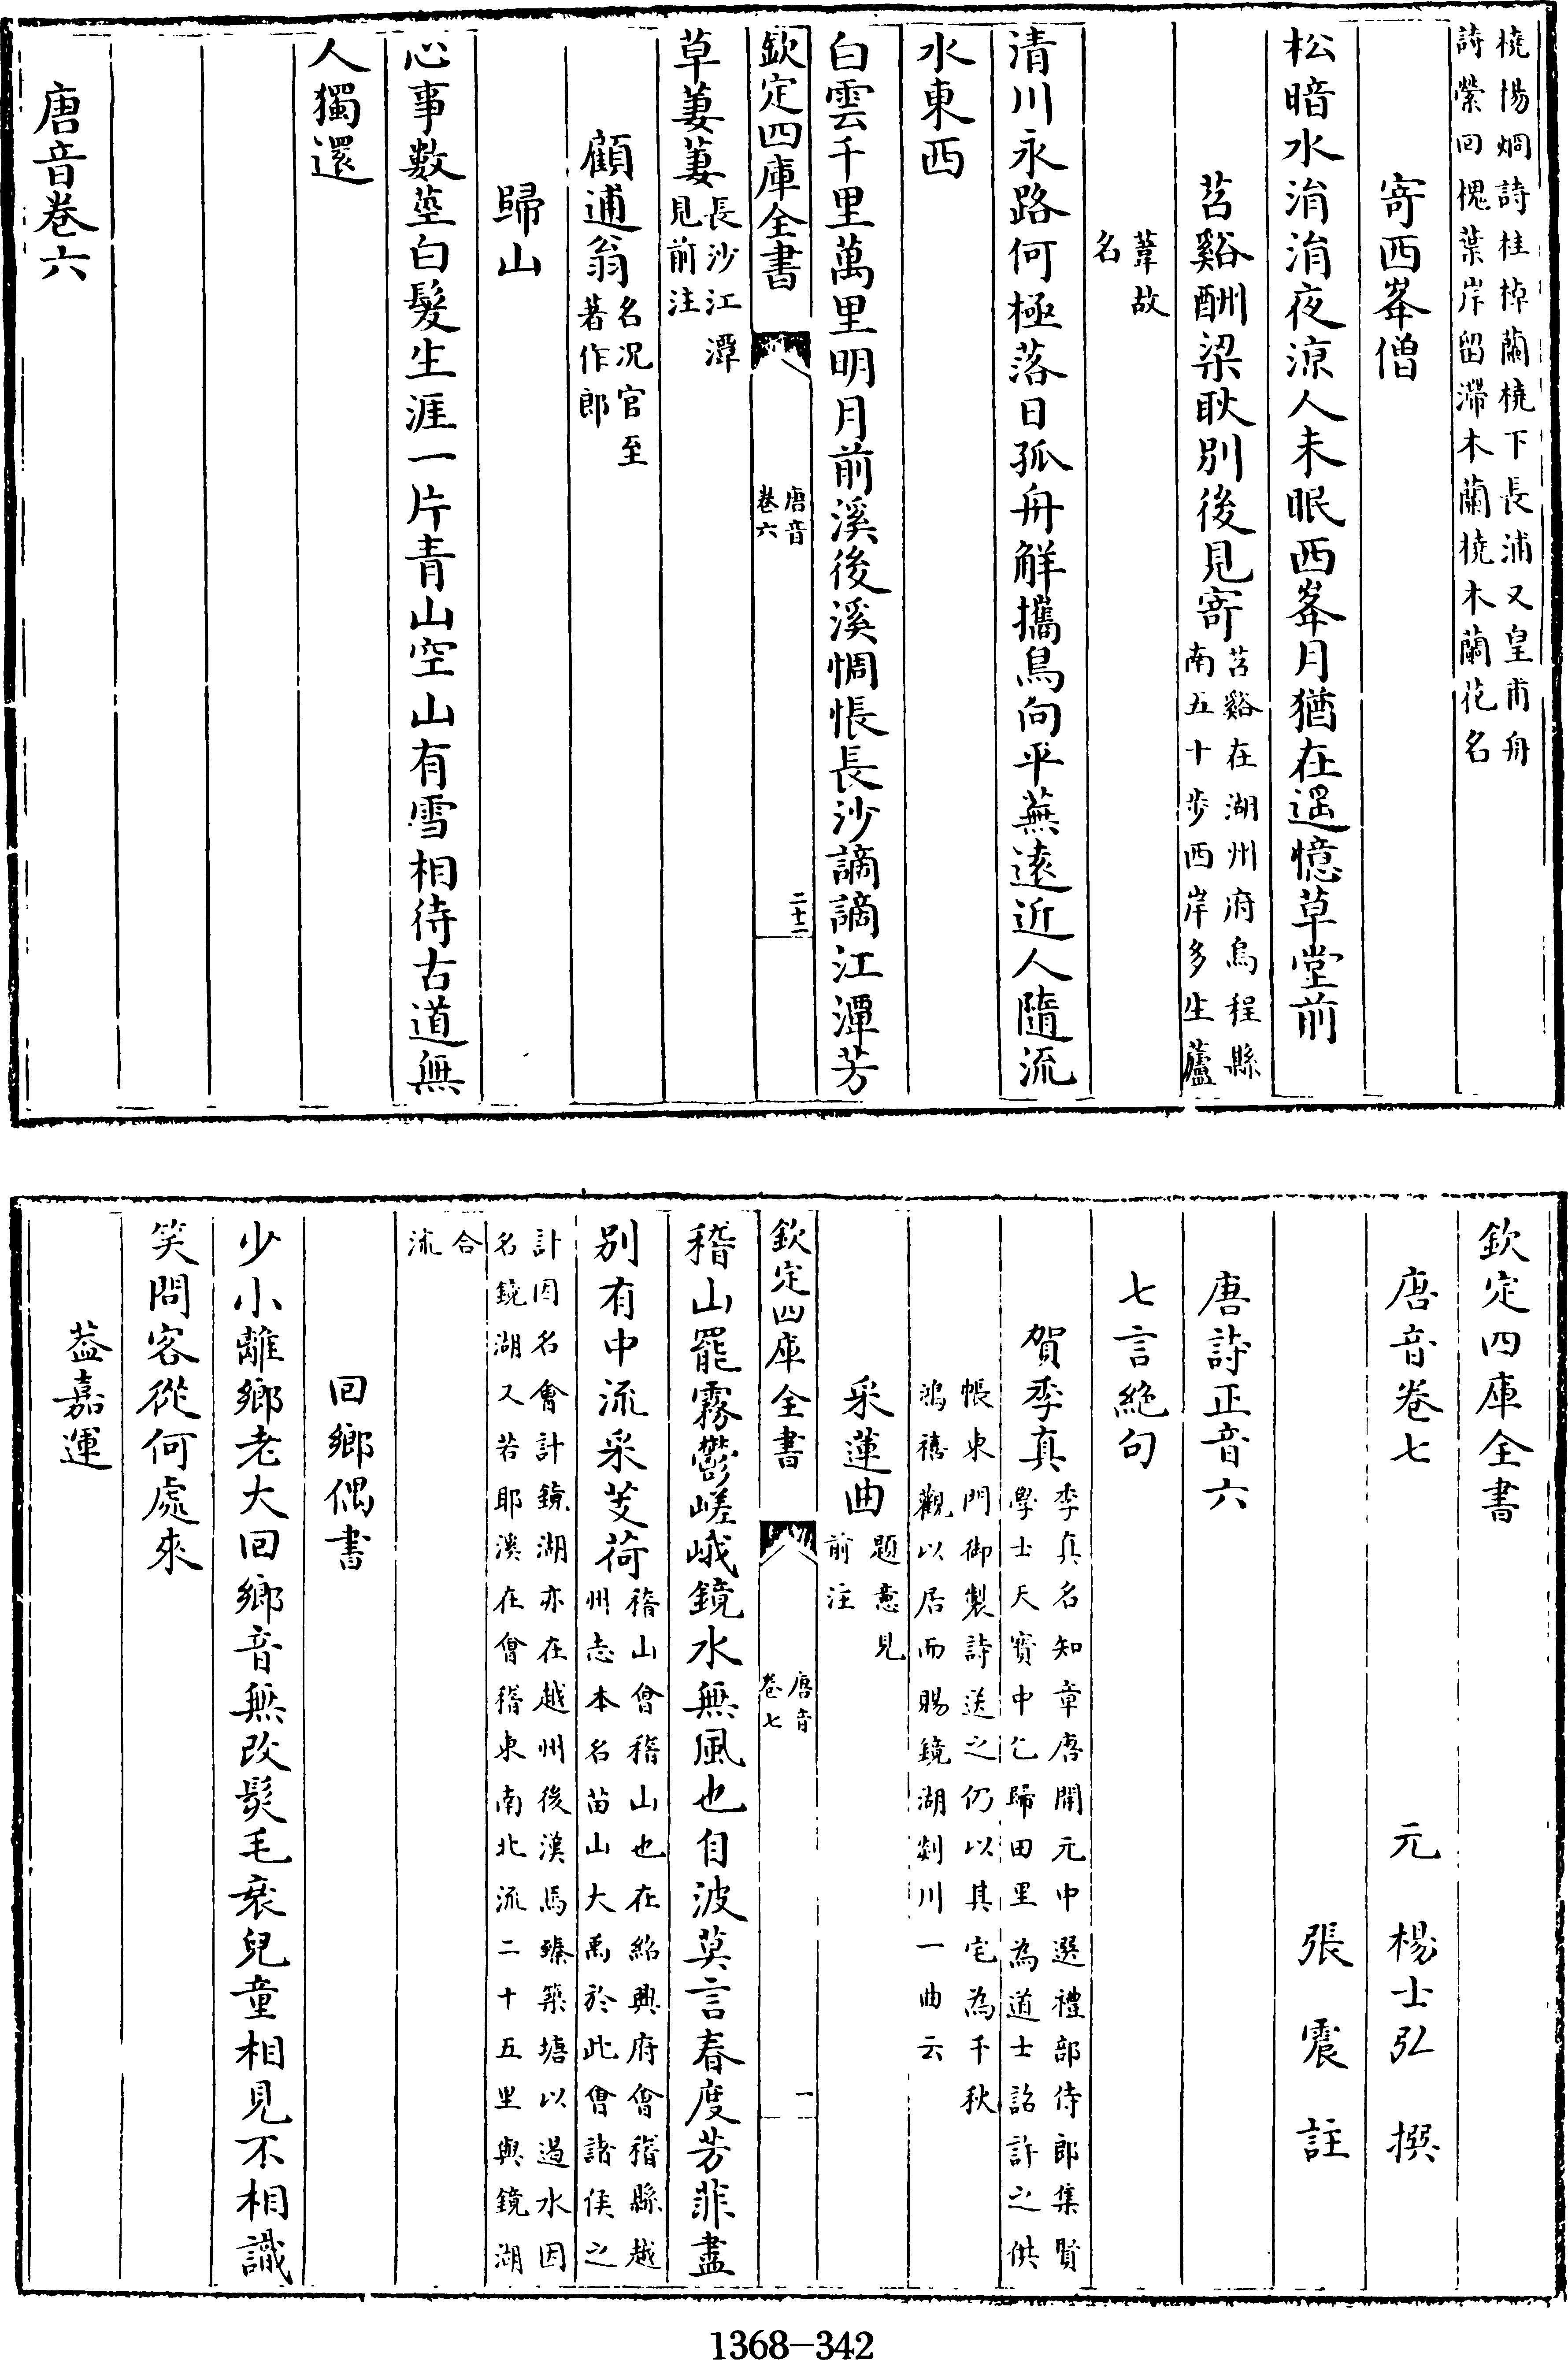 橈惕烱詩桂棹蘭橈下長浦又皇甫舟
詩縈回槐葉岸留滯木蘭橈木蘭花名
寄西峯僧
松暗水涓涓夜涼人未眠西峯月猶在遥憶草堂前
苕谿酬梁耿别後見寄苕谿在湖州府烏程縣
南五十步西岸多生蘆
葦故
名
清川永路何極落日孤舟解攜鳥向平蕪逺近人隨流
水東西
白雲千里萬里明月前溪後溪惆悵長沙謫謫江潭芳
欽定四庫全書
唐音
卷六
二十二
草萋萋長沙江潭
見前注
顧逋翁名况官至
著作郎
歸山
心事數莖白髮生涯一片青山空山有雪相待古道無
人獨還
唐音卷六
欽定四庫全書
唐音卷七
元 楊士弘 撰
張 震 註
唐詩正音六
七言絶句
賀季真季真名知章唐開元中選禮部侍郎集賢
學士天寳中乞歸田里為道士詔許之供
帳東門御製詩送之仍以其宅為千秋
鴻禧觀以居而賜鏡湖剡川一曲云
采蓮曲題意見
前注
欽定四庫全書
唐音
卷七
一
稽山罷霧鬱嵯峨鏡水無風也自波莫言春度芳菲盡
别有中流采芰荷稽山㑹稽山也在紹興府㑹稽縣越
州志本名苗山大禹於此㑹諸侯之
計因名㑹計鏡湖亦在越州後漢馬臻築塘以過水因
名鏡湖又若耶溪在㑹稽東南北流二十五里與鏡湖
合
流
回鄉偶書
少小離鄉老大回鄉音無改鬂毛衰兒童相見不相識
笑問客從何處來
葢嘉運
1368-342